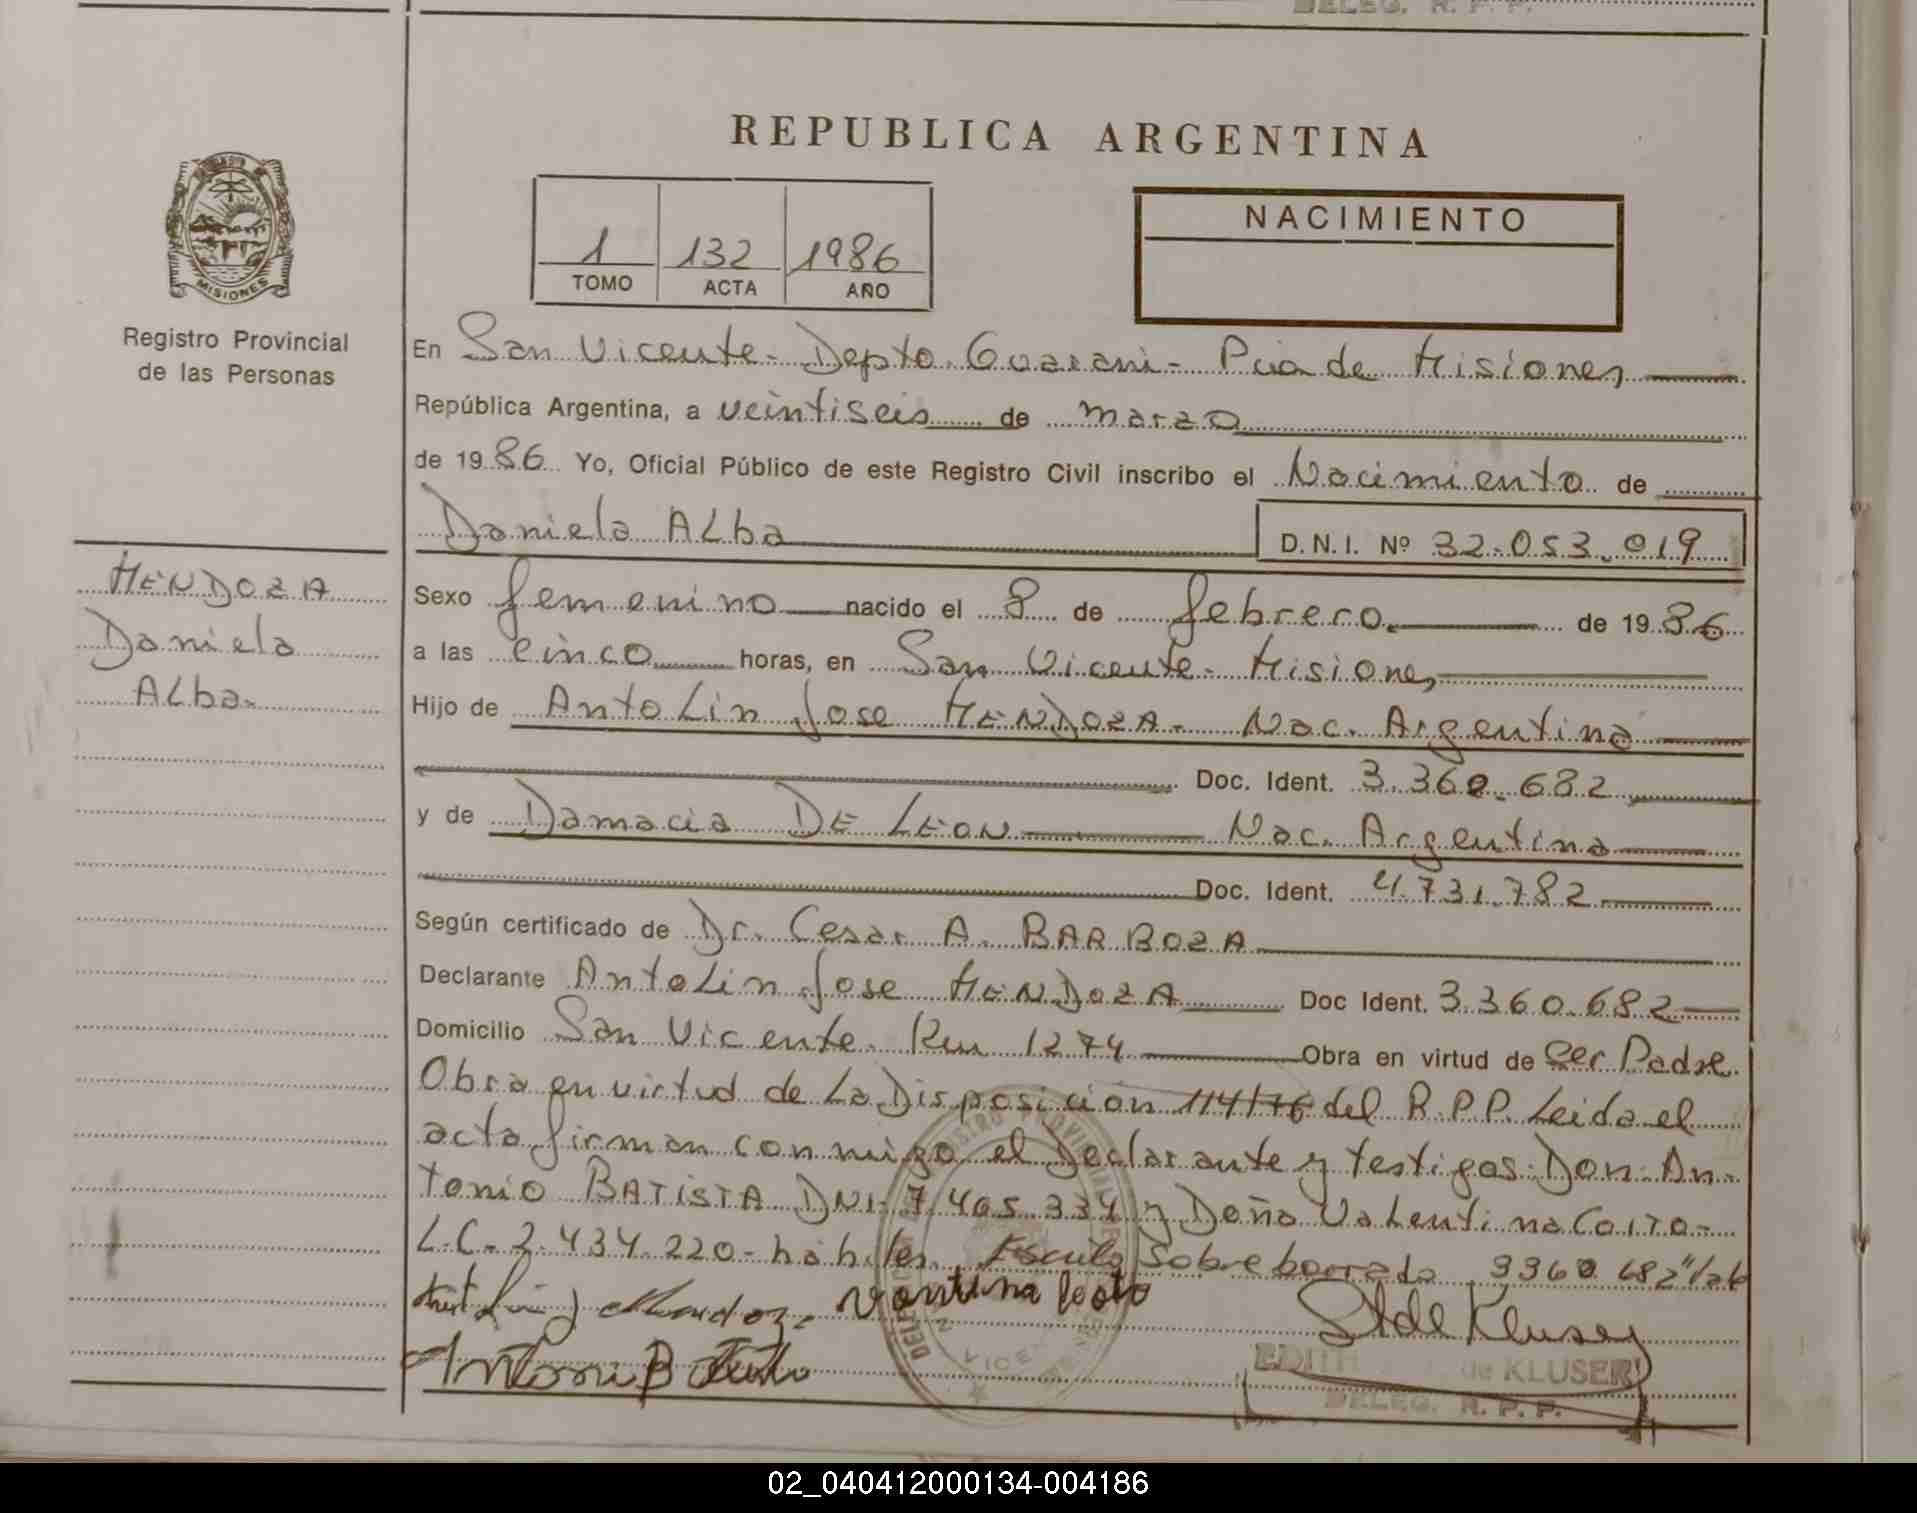 DELEG. R. P. P.
REPUBLICA ARGENTINA
NACIMIENTO
1 132 1986
TOMO ACTA AÑO
MISIONES
Registro Provincial
de las Personas
En San Vicente - Depto. Guarani - Pcia de Misiones
República Argentina, a veintiseis de marzo
de 1986 Yo, Oficial Público de este Registro Civil inscribo el Nacimiento de
Daniela ALba D.N.I. Nº 32.053.019
MENDOZA
Daniela
ALba.
Sexo femenino nacido el 8 de febrero de 1986
a las cinco horas, en San Vicente - Misiones
Hijo de AntoLin Jose MENDOZA - Nac. Argentina
Doc. Ident. 3.360.682
y de Damacia DE LEON Nac. Argentina
Doc. Ident. 4.731.782
Según certificado de Dr. Cesar A. BARBOZA
Declarante AntoLin Jose MENDOZA Doc Ident. 3.360.682
Domicilio San Vicente Km 1274 Obra en virtud de Ser Padre
Obra en virtud de La Disposicion 114/76 del R.P.P. Leida el
acta firman conmigo el Declarante y testigos: Don An-
tonio BATISTA DNI 7.465.334 y Doña VaLentina Coito -
L.C. 2.434.220 - habiles. Escrito sobre borrado 3360 682"
Antolin J Mendoza
EDITH de KLUSER
DELEG. R. P. P.
02_040412000134-004186